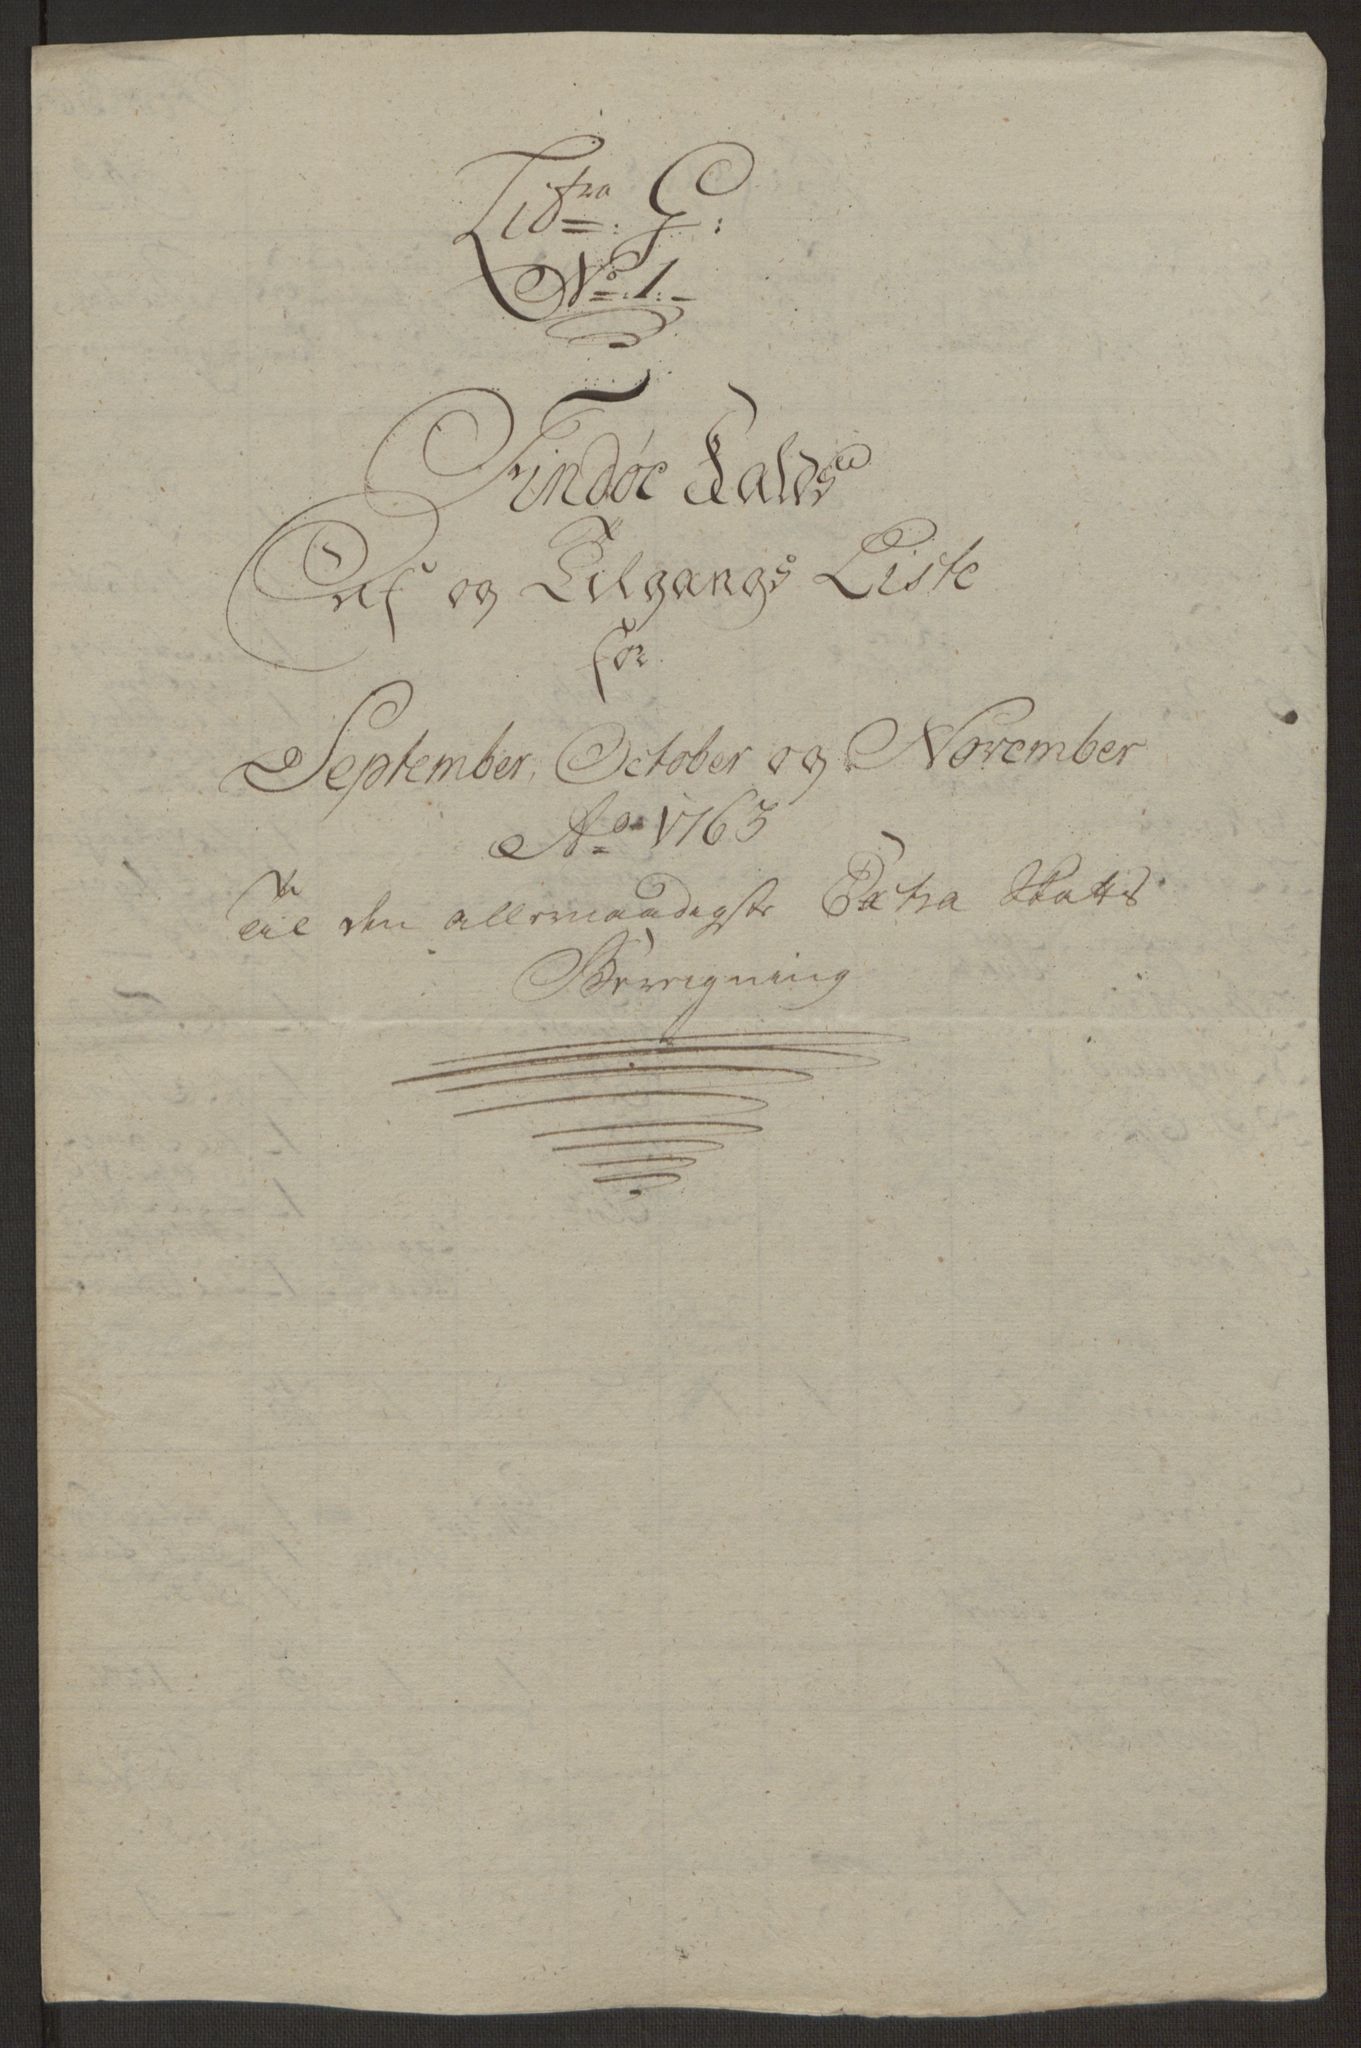 Lit^tra: G:
No: 1:
Findøe Kalds
Af og Tilgangs Liste
for
September, October og November
Ao 1763
Til den allernaadigste Extra Skatts
Beregning